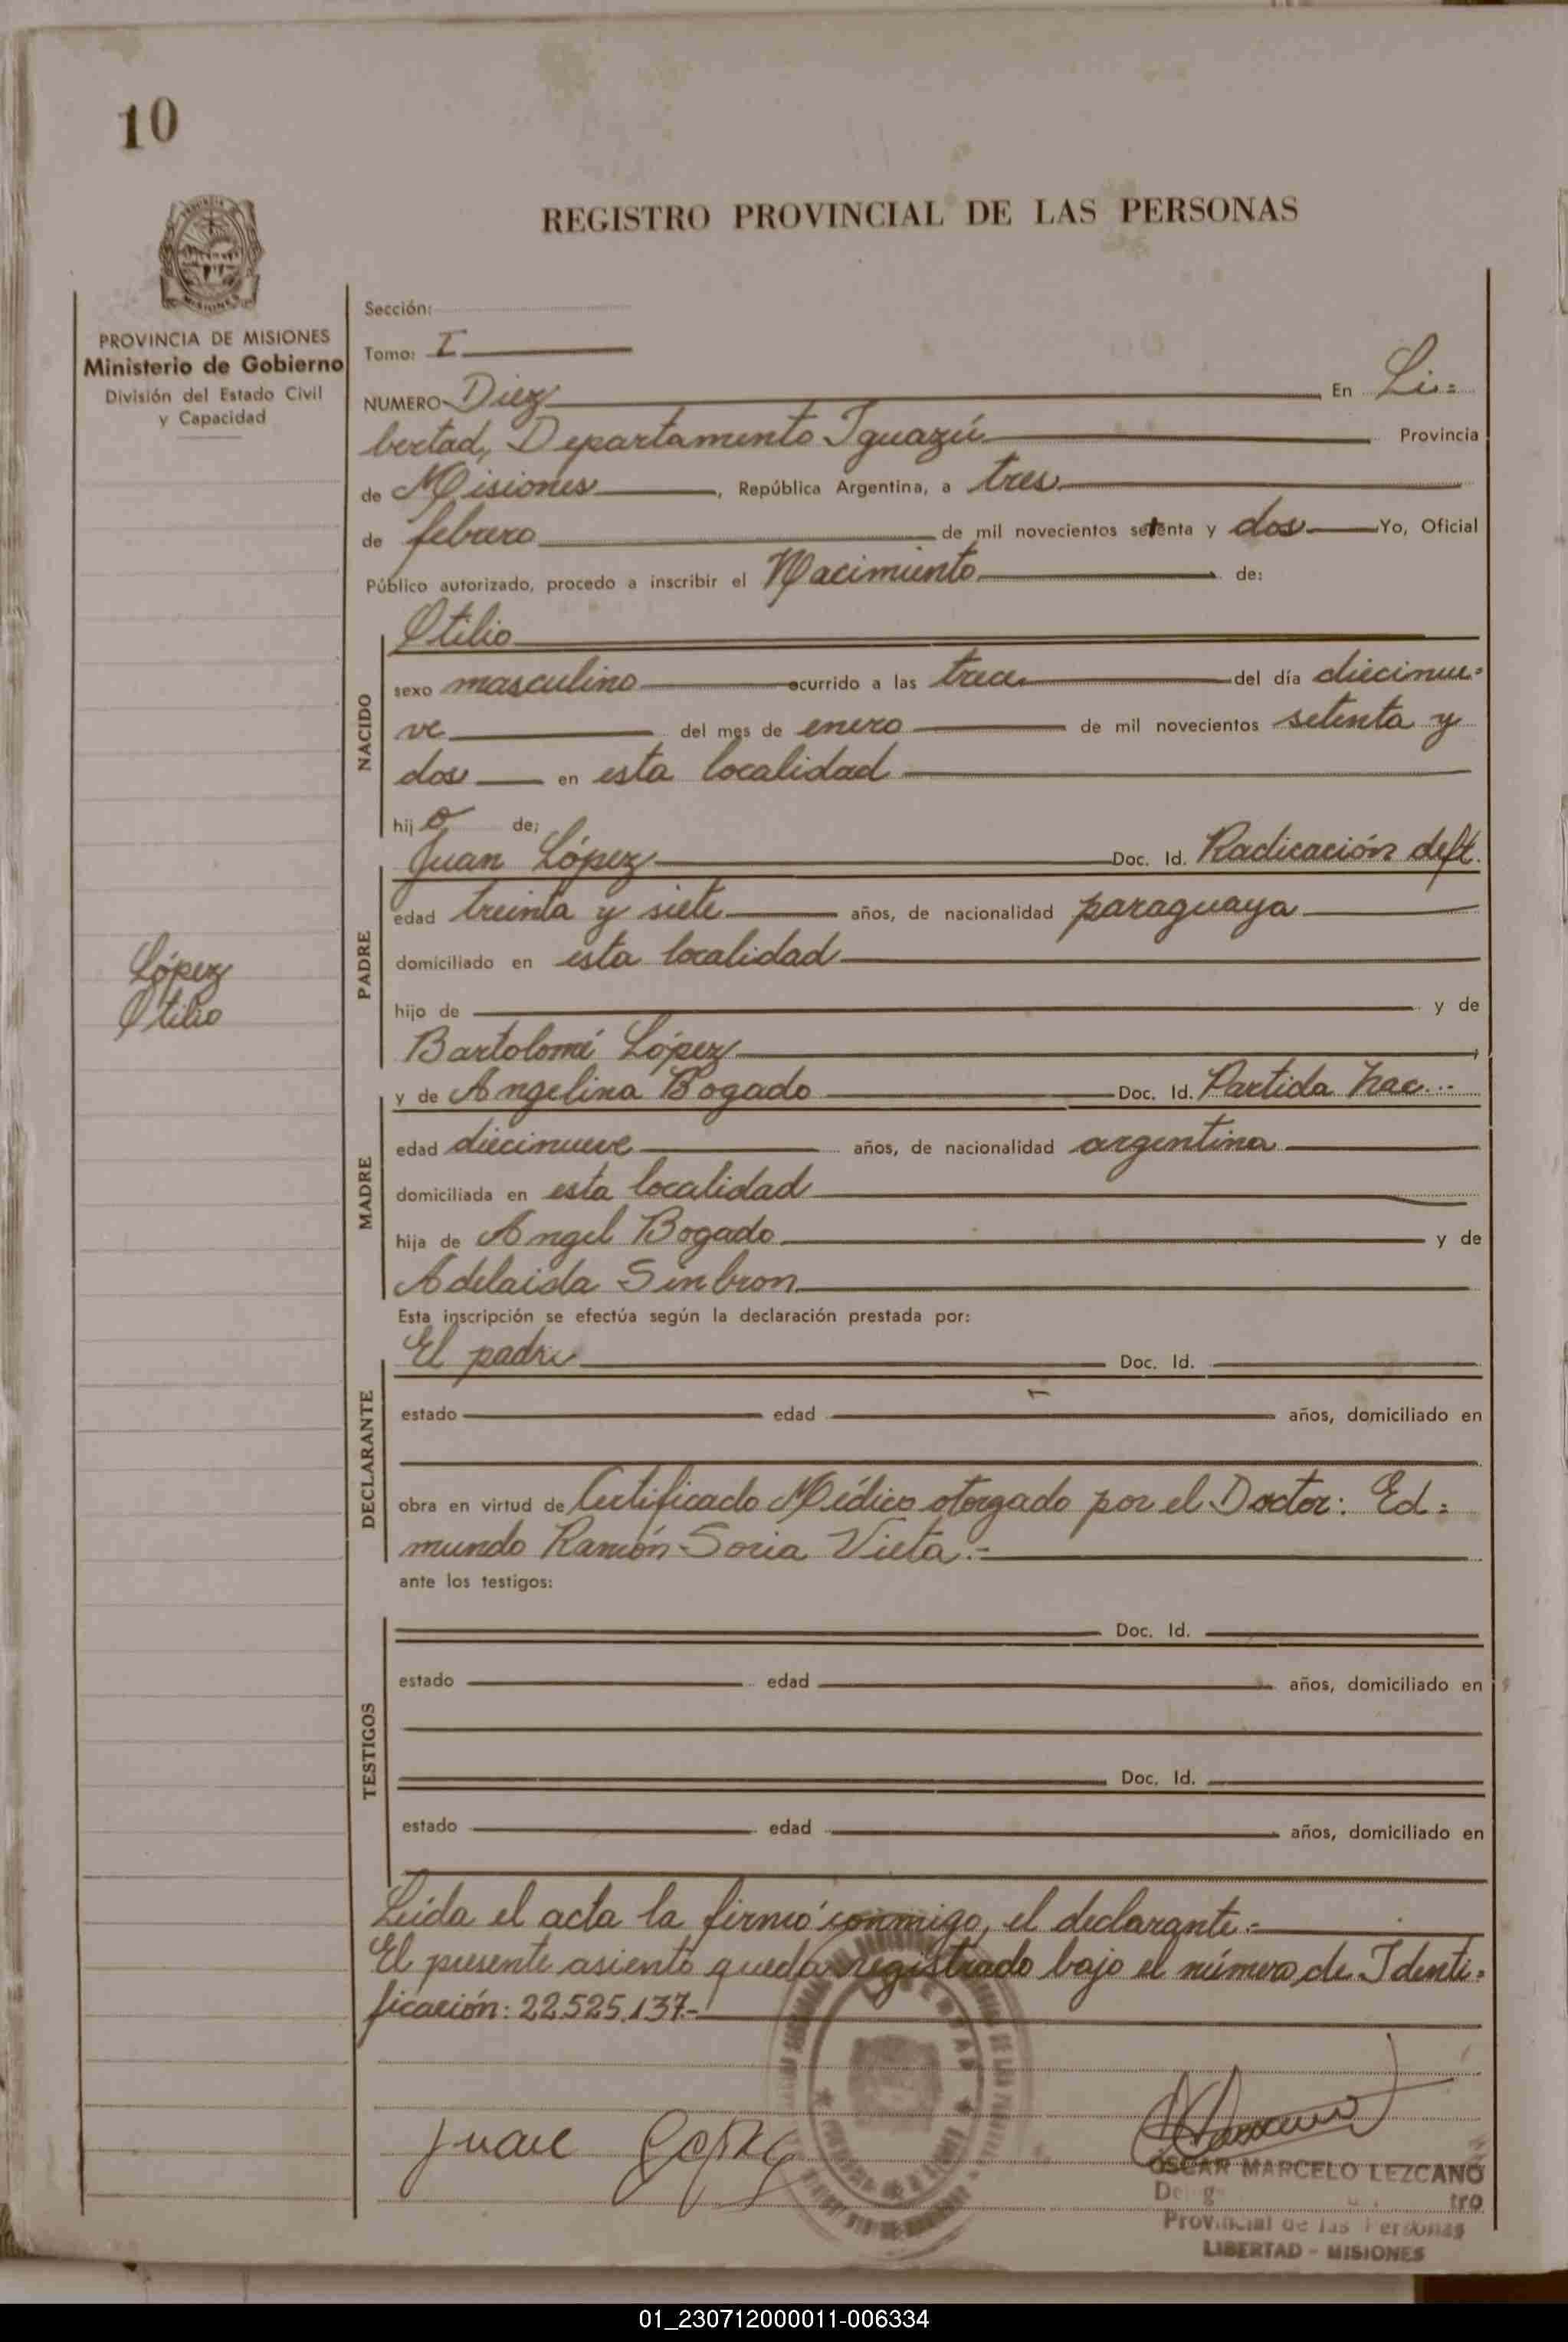 10
REGISTRO PROVINCIAL DE LAS PERSONAS
PROVINCIA DE MISIONES
Ministerio de Gobierno
División del Estado Civil
y Capacidad
Sección:
Tomo: I
NUMERO Diez En Li=
bertad, Departamento Iguazú Provincia
de Misiones, República Argentina, a tres
de febrero de mil novecientos setenta y dos Yo, Oficial
Público autorizado, procedo a inscribir el Nacimiento de:
NACIDO
Otilio
sexo masculino ocurrido a las trece del día diecinue=
ve del mes de enero de mil novecientos setenta y
dos en esta localidad
hijo de;
PADRE
Juan López Doc. Id. Radicación deft.
edad treinta y siete años, de nacionalidad paraguaya
domiciliado en esta localidad
hijo de y de
Bartolomé López
López
Otilio
MADRE
y de Angelina Bogado Doc. Id. Partida Nac.-
edad diecinueve años, de nacionalidad argentina
domiciliada en esta localidad
hija de Angel Bogado y de
Adelaida Sinbron
Esta inscripción se efectúa según la declaración prestada por:
DECLARANTE
El padre Doc. Id.
estado edad años, domiciliado en
obra en virtud de Certificado Médico otorgado por el Doctor: Ed=
mundo Ramón Soria Vieta.-
ante los testigos:
TESTIGOS
Doc. Id.
estado edad años, domiciliado en
Doc. Id.
estado edad años, domiciliado en
Leída el acta la firmó conmigo, el declarante.-
El presente asiento queda registrado bajo el número de Identi=
ficación: 22.525.137.-
Juan López
OSCAR MARCELO LEZCANO
Provincial de las Personas
LIBERTAD - MISIONES
01_230712000011-006334